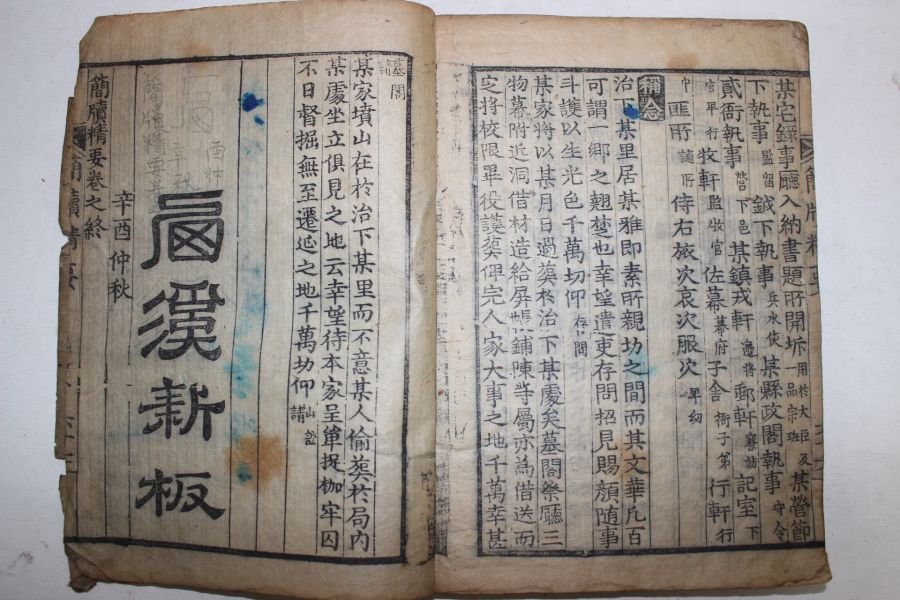 某宅錄事廳入納書題所開坼用於大臣及一品宗班某營節
下執事監留鉞下執事兵水使某縣政閣執事守令
貳衙執事營下邑某鎭戎軒邊將郵軒察訪記室下
官早行牧軒監牧官佐幕幕府子舍衙子弟行軒行
中匪所謫所侍右旅次哀次服次早幼
稱念
治下某里居某雅即素所親切之間而其文華凡百
可謂一鄉之翹楚也幸望遣吏存問招見賜顔隨事
斗護以生光色千萬切仰存問
某家將以某月日過葬於治下某處矣墓閣祭廳三
物幕附近洞借材造給屛帳鋪陳等屬亦爲借送而
定將校限畢役護葬俾完人家大事之地千萬幸甚
墓閣請
某家墳山在於治下某里而不意某人偷葬於局內
某處坐立俱見之地云幸望待本家呈單捉枷牢囚
不日督掘無至遷延之地千萬切仰山訟請
西溪新板
辛酉仲秋
簡牘精要卷之終
簡牘精要